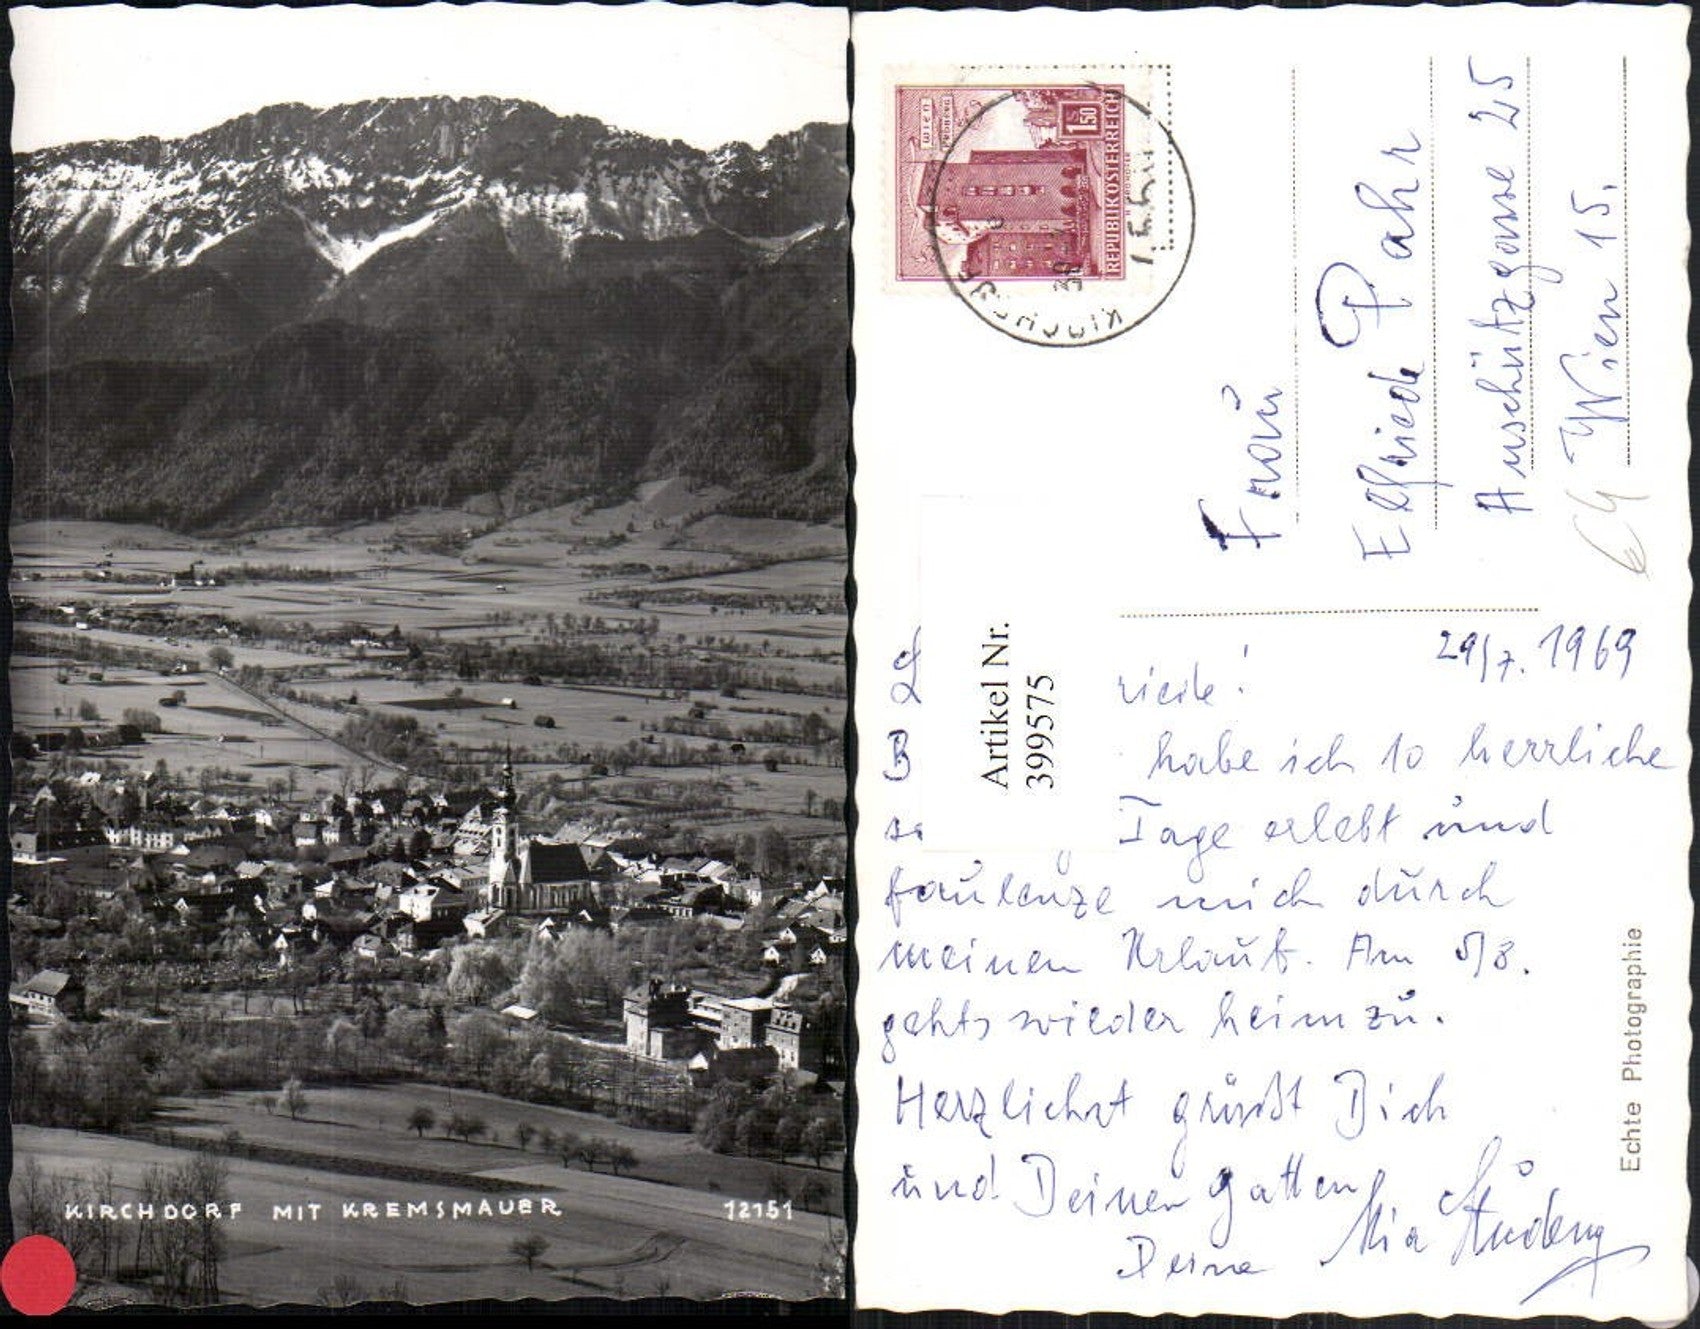 KIRCHDORF MIT KREMSMAUER 12151
wien
1.50
REPUBLIK ÖSTERREICH
KIRCHD
Frau
Elfriede Pahr
Anschützgasse 25
Wien 15.
Artikel Nr.
399575
29/7. 1969
L riede!
B habe ich 10 herrliche
Tage erlebt und
faulenze mich durch
meinen Urlaub. Am 5/8.
gehts wieder heimzu.
Herzlichst grüsst Dich
und Deinen Gatten
Deine Mia
Echte Photographie